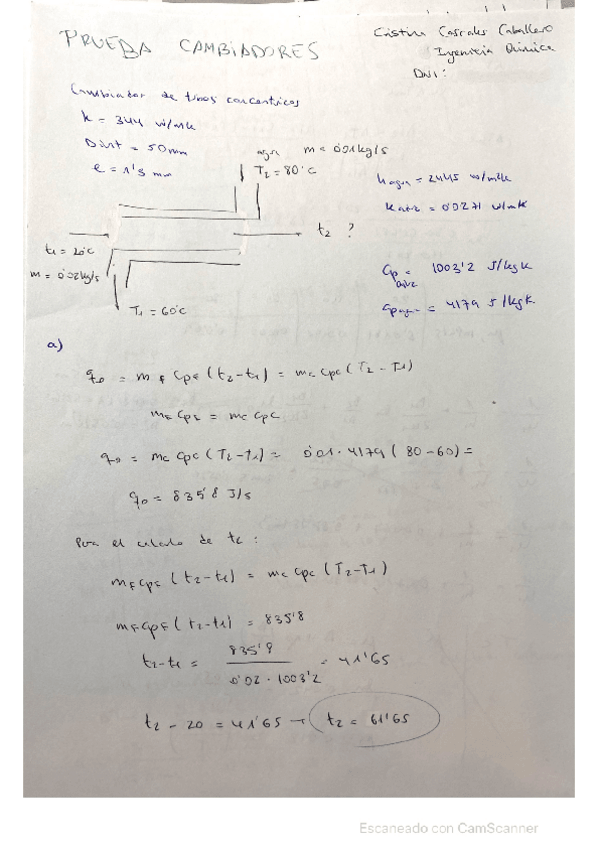 PRUEBA CAMBIADORES
Cristina Corrales Caballero
Ingenieria Quimica
DNI:
Cambiador de tubos concentricos
k = 344 w/mk
Dint = 50 mm
e = 1'3 mm
agua m = 0'01 kg/s
T2 = 80°C
t2 ?
t1 = 20°C
m = 0'02 kg/s
T1 = 60°C
hagua = 2445 w/m²k
kaire = 0'0271 w/mk
Cp aire = 1003'2 J/kg k
Cpagua = 4179 J/kg k
a)
q0 = mF CpF (t2-t1) = mc cpc (T2-T1)
mF CpF = mc cpc
q0 = mc cpc (T2-T1) = 0'01 · 4179 ( 80 - 60) =
q0 = 835'8 J/s
Para el calculo de t2 :
mF CpF (t2-t1) = mc cpc (T2-T1)
mF CpF (t2-t1) = 835'8
t2-t1 = 835'8 / 0'02 · 1003'2 = 41'65
t2 - 20 = 41'65 → t2 = 61'65
Escaneado con CamScanner